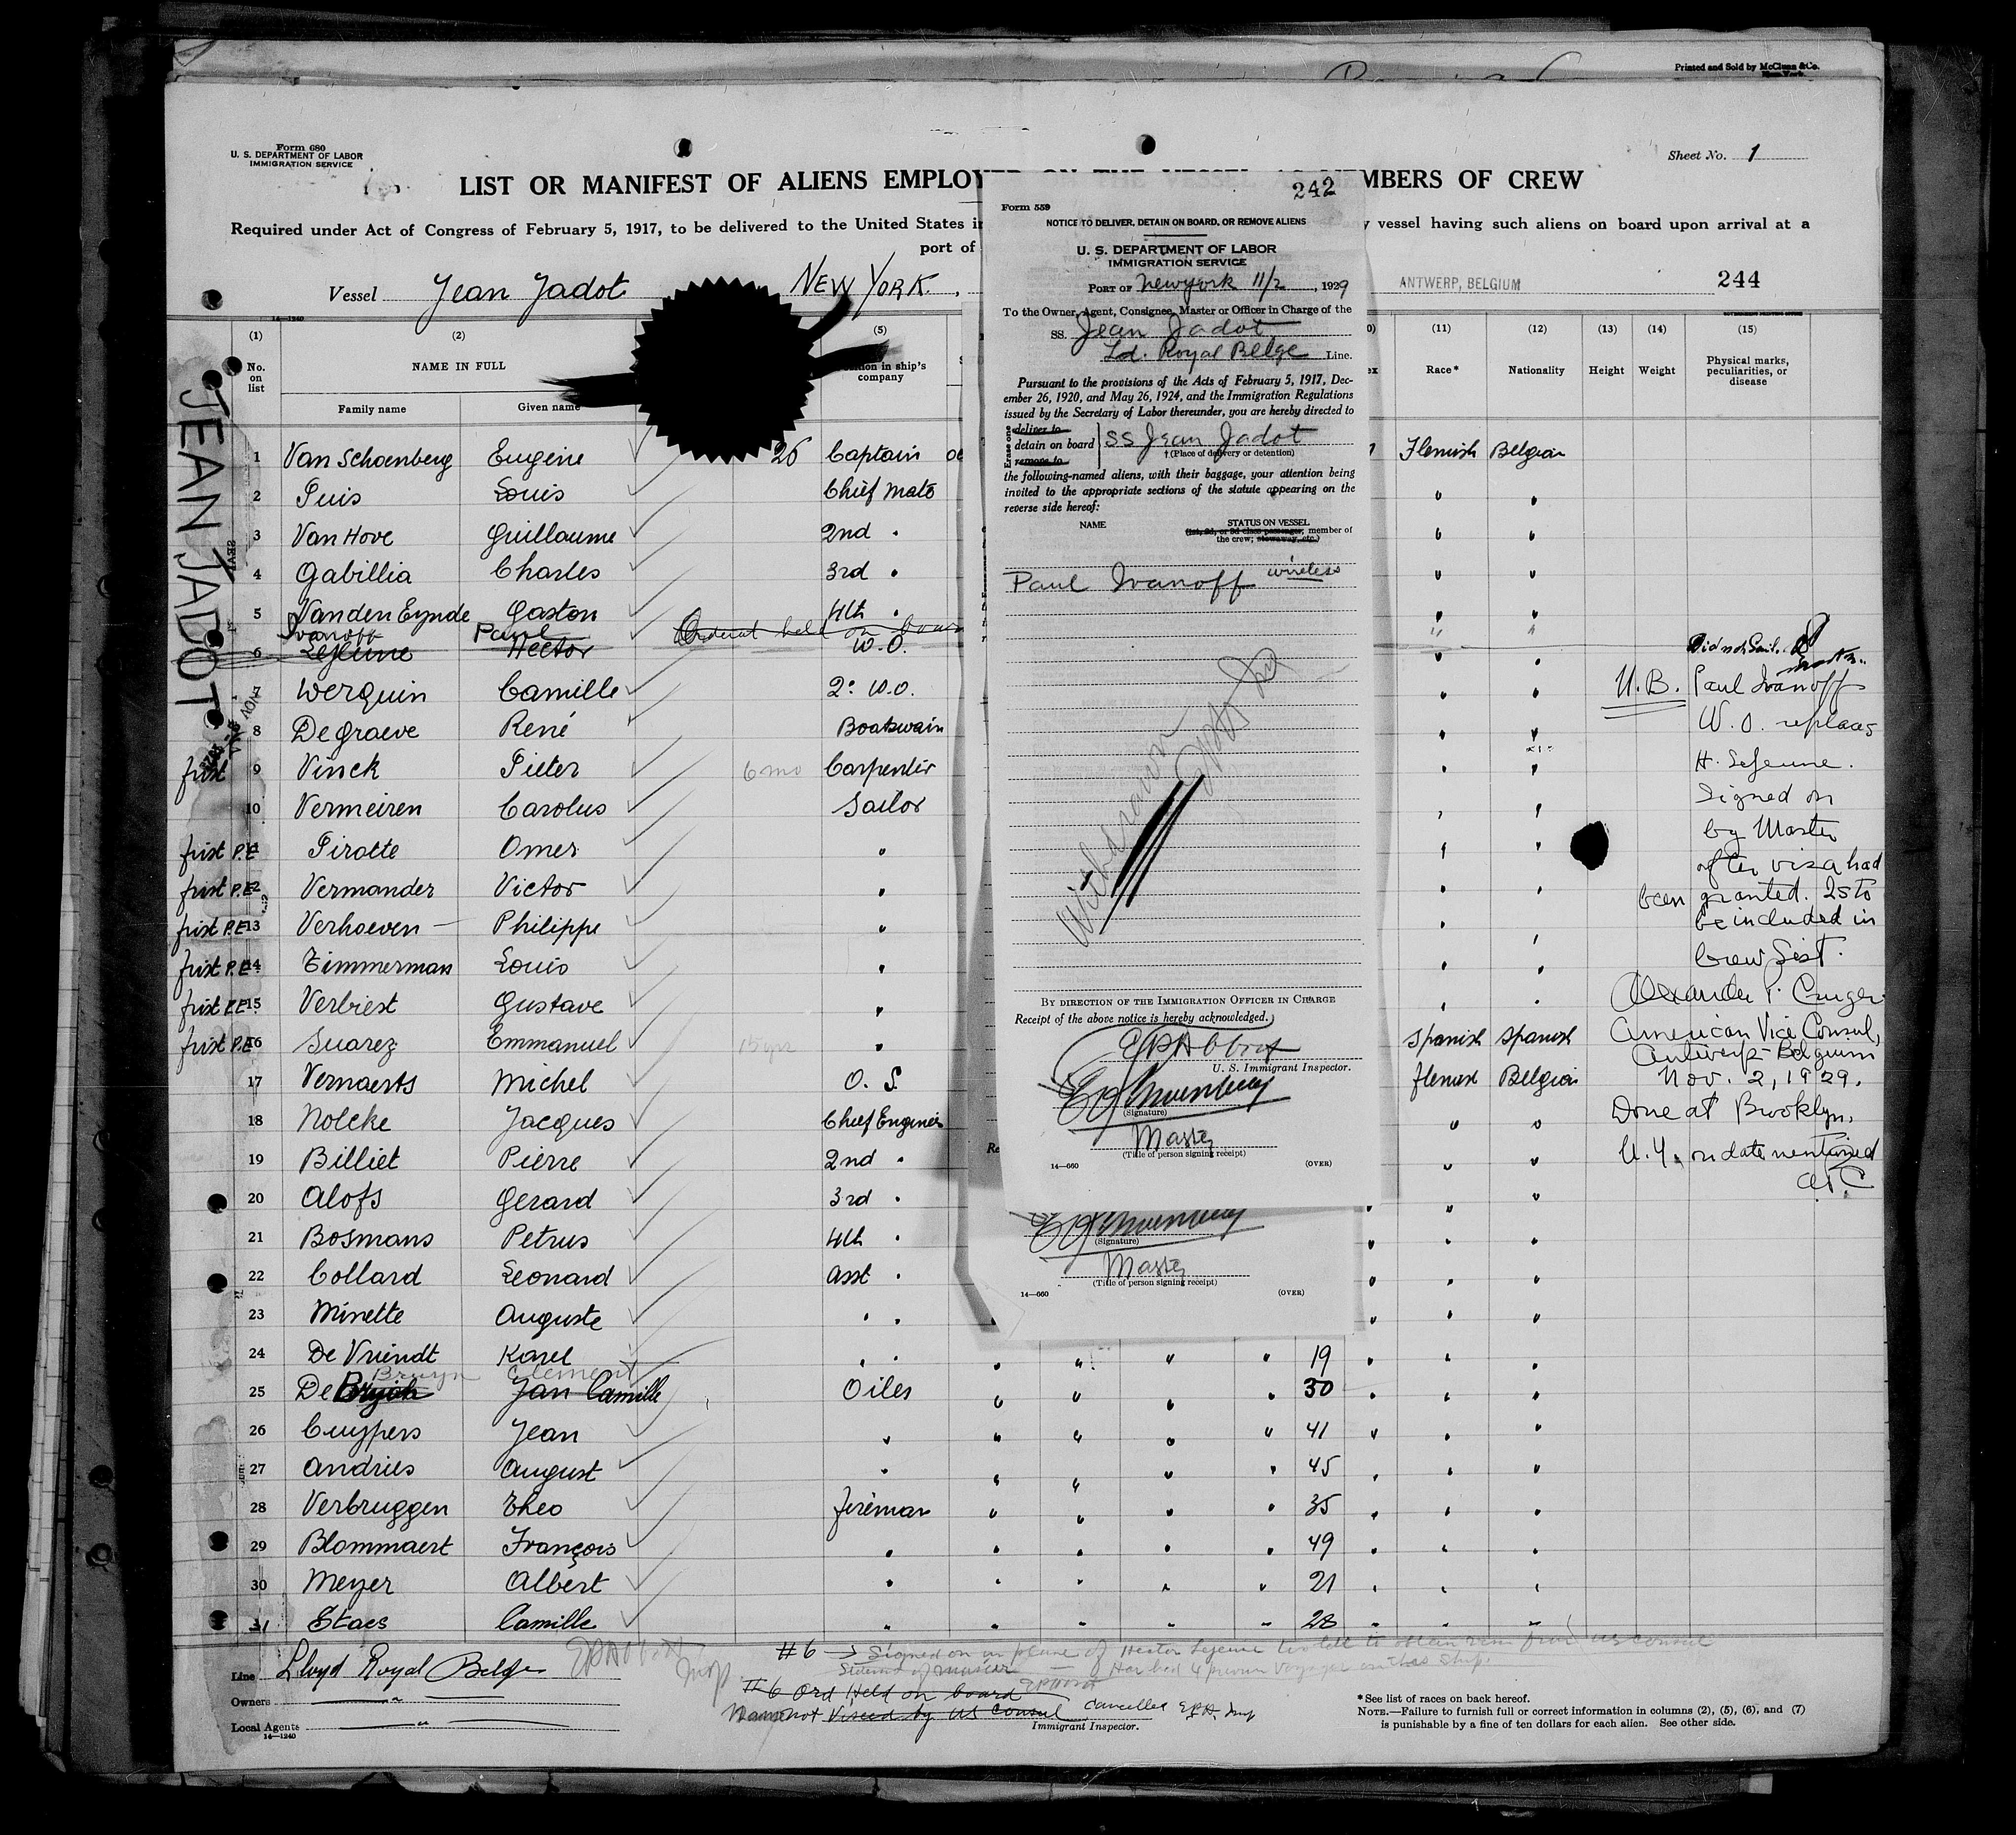 Printed and Sold by McClunn & Co.
New York.
Form 680
U. S. DEPARTMENT OF LABOR
IMMIGRATION SERVICE
Sheet No. 1
LIST OR MANIFEST OF ALIENS EMPLOYED ON THE VESSEL AS MEMBERS OF CREW
Required under Act of Congress of February 5, 1917, to be delivered to the United States
y vessel having such aliens on board upon arrival at a
port of
Vessel Jean Jadot
NEW YORK.
ANTWERP, BELGIUM
244
14-1240
(1) (2) (5) (11) (12) (13) (14) (15)
No. on list
NAME IN FULL
Family name
Given name
in ship's company
Race*
Nationality
Height
Weight
Physical marks, peculiarities, or disease
JEAN JADOT
1 Van Schoenberg Eugène 26 Captain Flemish Belgian
2 Puis Louis Chief Mate " "
3 Van Hove Guillaume 2nd " " "
4 Gabillia Charles 3rd " " "
5 Vanden Eynde Gaston 4th " " "
Ivanoff Paul Ordered held on board " "
6 Lejeune Hector W.O. " " Did not Sail.
7 Werquin Camille 2e W.O. " "
8 De Graeve René Boatswain " "
first 9 Vinck Pieter 6 mo Carpenter " "
10 Vermeiren Carolus Sailor " "
first P.E. 11 Pirotte Omer " " "
first P.E. 12 Vermander Victor " " "
first P.E. 13 Verhoeven Philippe " " "
first P.E. 14 Timmerman Louis " " "
first P.E. 15 Verbiest Gustave " " "
first P.E. 16 Suarez Emmanuel 15 yrs " Spanish Spanish
17 Vernaerts Michel O. S. Flemish Belgian
18 Nolcke Jacques Chief Engineer " "
19 Billiet Pierre 2nd " " "
20 Alofs Gerard 3rd " " "
21 Bosmans Petrus 4th " " "
22 Collard Leonard asst " " "
23 Minette Auguste " " " "
24 De Vriendt Karel " " " " " " 19 " " "
Bruyn Clement
25 De Jan Camille Oiler " " " " 30 " " "
26 Cuypers Jean " " " " " 41 " " "
27 Andries August " " " " " 45 " " "
28 Verbruggen Theo fireman " " " " 35 " " "
29 Blommaert François " " " " " 49 " " "
30 Meyer Albert " " " " " 21 " " "
31 Staes Camille " " " " " 28 " " "
N.B. Paul Ivanoff
W.O. replaces
H. Lejeune.
Signed on
by Master
after visa had
been granted. Is to
be included in
Crew List.
Alexander P. Cruger
American Vice Consul,
Antwerp - Belgium
Nov. 2, 1929.
Done at Brooklyn,
N.Y. on date mentioned
A.P.C
242
Form 559
NOTICE TO DELIVER, DETAIN ON BOARD, OR REMOVE ALIENS
U. S. DEPARTMENT OF LABOR
IMMIGRATION SERVICE
PORT OF New York 11/2, 1929
To the Owner, Agent, Consignee, Master or Officer in Charge of the
SS. Jean Jadot
Ld. Royal Belge Line.
Pursuant to the provisions of the Acts of February 5, 1917, Dec-
ember 26, 1920, and May 26, 1924, and the Immigration Regulations
issued by the Secretary of Labor thereunder, you are hereby directed to
Erase one
deliver to
detain on board SS Jean Jadot
remove to
†(Place of delivery or detention)
the following-named aliens, with their baggage, your attention being
invited to the appropriate sections of the statute appearing on the
reverse side hereof:
NAME STATUS ON VESSEL
(1st, 2d, or 3d class passenger; member of
the crew; stowaway, etc.)
Paul Ivanoff wireless
Withdrawn
BY DIRECTION OF THE IMMIGRATION OFFICER IN CHARGE
Receipt of the above notice is hereby acknowledged.
EPAbbot
U. S. Immigrant Inspector.
(Signature)
Master
(Title of person signing receipt)
14—660 (OVER)
(Signature)
Master
(Title of person signing receipt)
14—660 (OVER)
Line Lloyd Royal Belge
Owners "
Local Agents "
14—1240
EPAbbott
Insp.
#6 → Signed on in place of Hector Lejeune too late to obtain visa from US Consul
Statement of master — Has had 4 previous voyages on this ship.
#6 Ord Held on board
Name not Viseed by US Consul Cancelled EPA. Insp
Immigrant Inspector.
*See list of races on back hereof.
NOTE.—Failure to furnish full or correct information in columns (2), (5), (6), and (7)
is punishable by a fine of ten dollars for each alien. See other side.